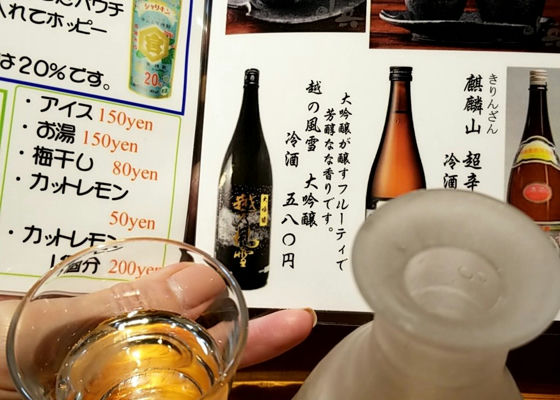 入れてホッピー
は20%です。
・アイス 150yen
・お湯 150yen
・梅干し 80yen
・カットレモン
50yen
・カットレモン
1個分 200yen
キンミヤ
20
大吟醸が醸すフルーティで
芳醇なな香りです。
越の風雪 大吟醸
冷酒 五八〇円
きりんざん
麒麟山 超辛
冷酒
大吟醸
越乃風雪